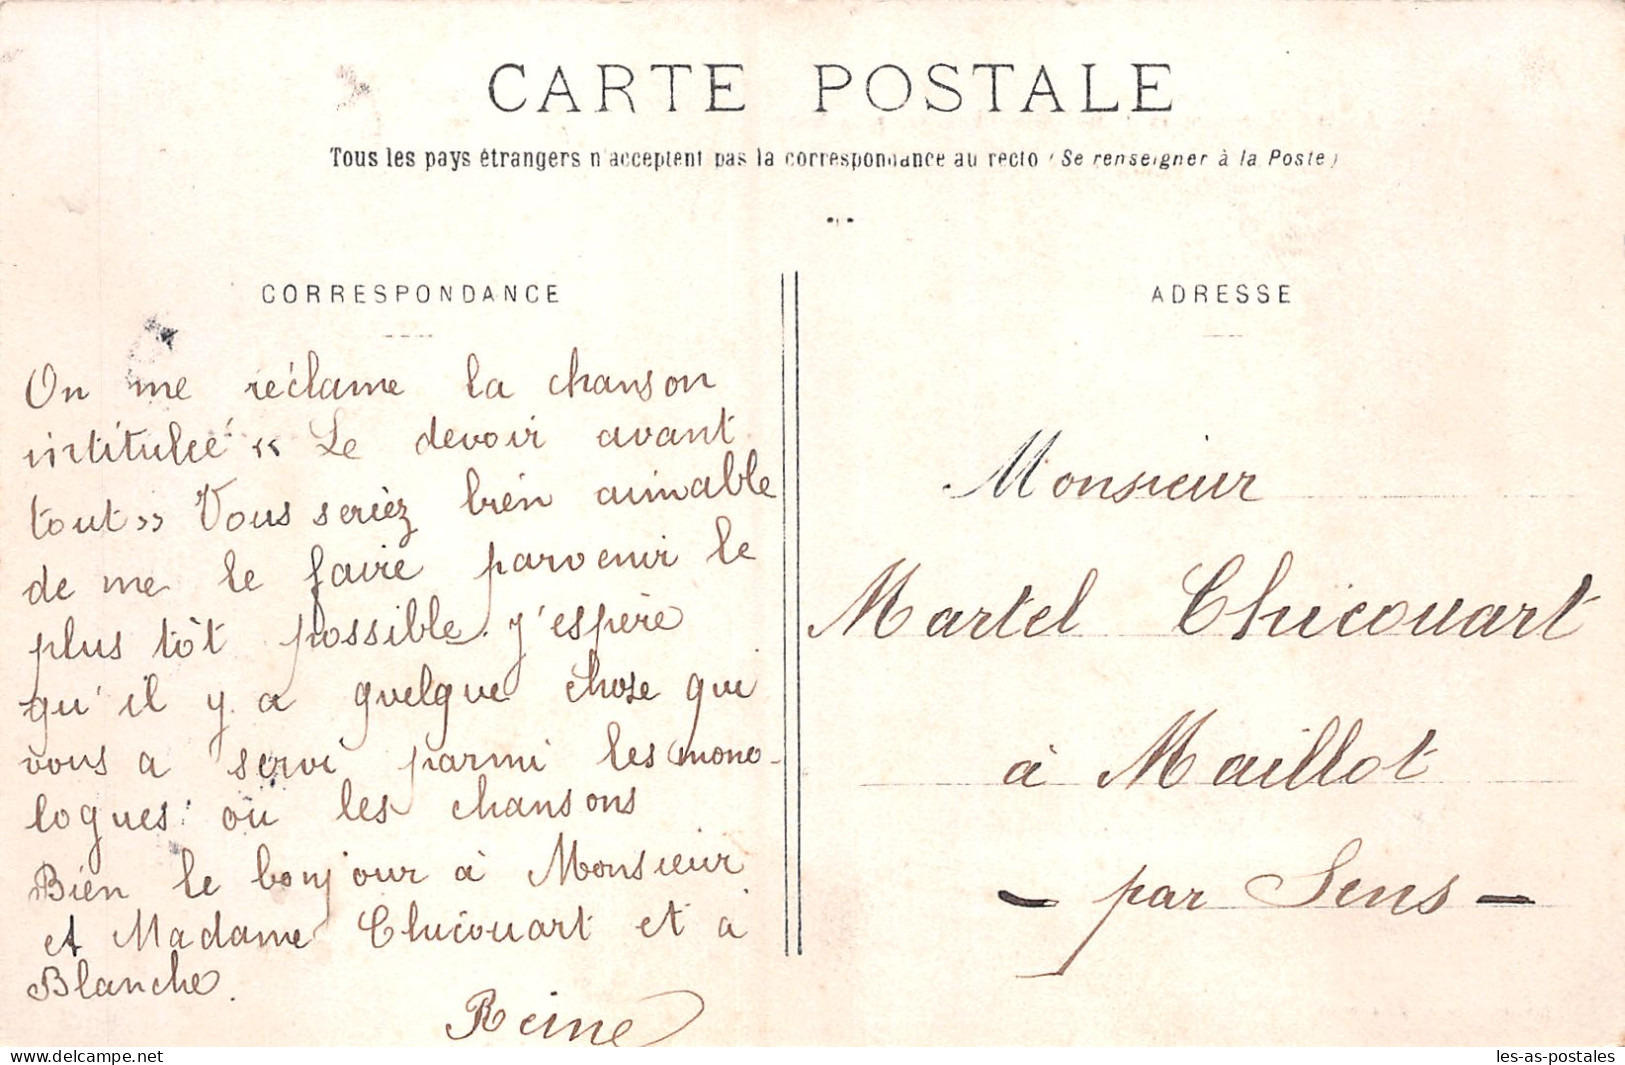 CARTE POSTALE
Tous les pays étrangers n'acceptent pas la correspondance au recto (Se renseigner à la Poste)
CORRESPONDANCE
On me réclame la chanson
intitulée « Le devoir avant
tout » Vous seriez bien aimable
de me le faire parvenir le
plus tôt possible. J'espère
qu'il y a quelque chose qui
vous a servi parmi les mono-
logues ou les chansons
Bien le bonjour à Monsieur
et Madame Chicouart et à
Blanche.
Reine
ADRESSE
Monsieur
Martel Chicouart
à Maillot
- par Sens -
delcampe.net
les-as-postales